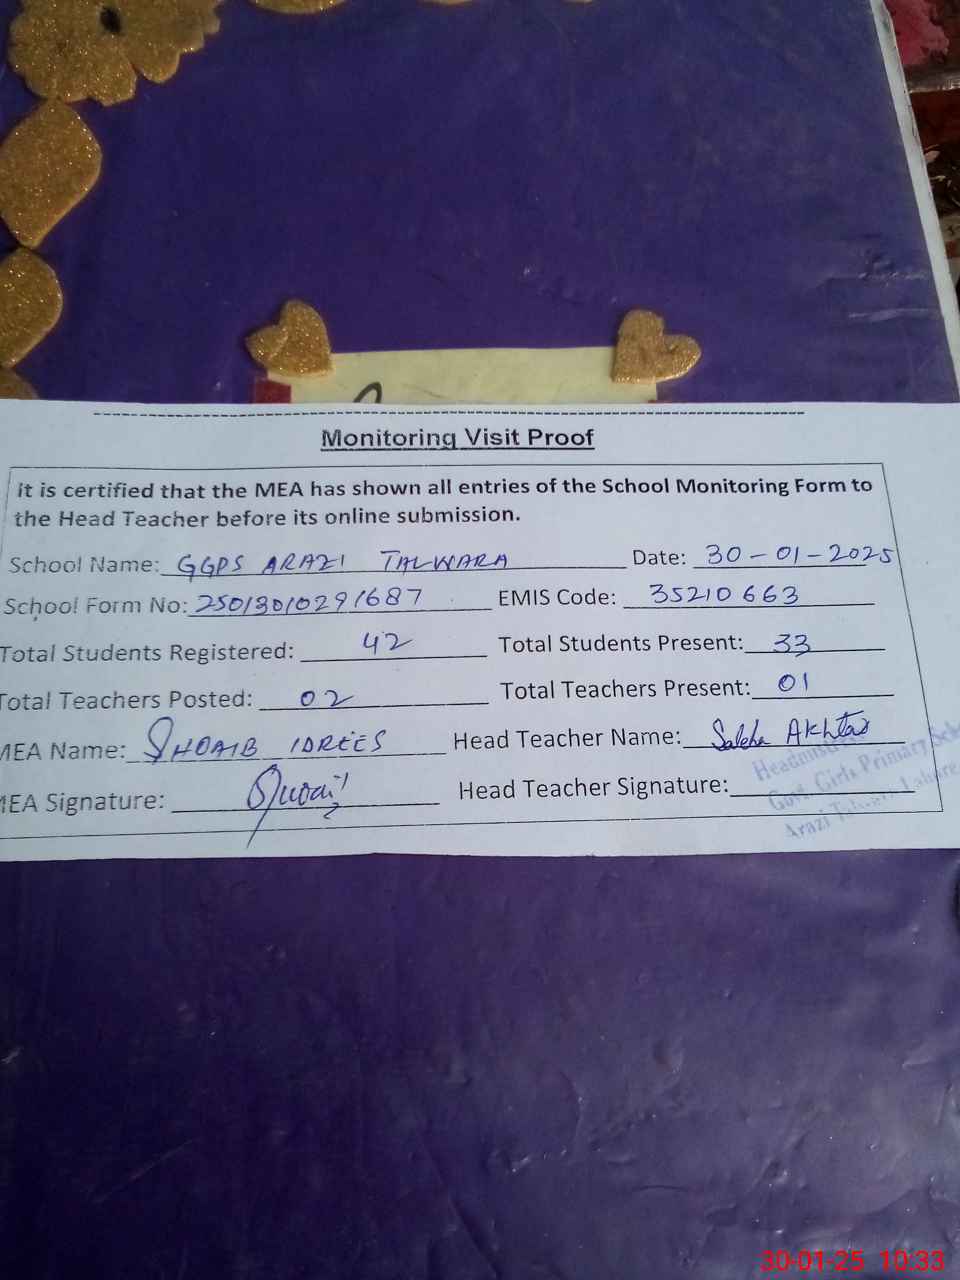 Monitoring Visit Proof
it is certified that the MEA has shown all entries of the School Monitoring Form to
the Head Teacher before its online submission.
School Name: GGPS ARAZI TALWARA Date: 30-01-2025
School Form No: 25013010291687 EMIS Code: 35210663
Total Students Registered: 42 Total Students Present: 33
Total Teachers Posted: 02 Total Teachers Present: 01
MEA Name: SHOAIB IDREES Head Teacher Name: Saleha Akhtar
MEA Signature: Head Teacher Signature:
Headmistress
Govt. Girls Primary
Arazi Talwara Lahore
30-01-25 10:33